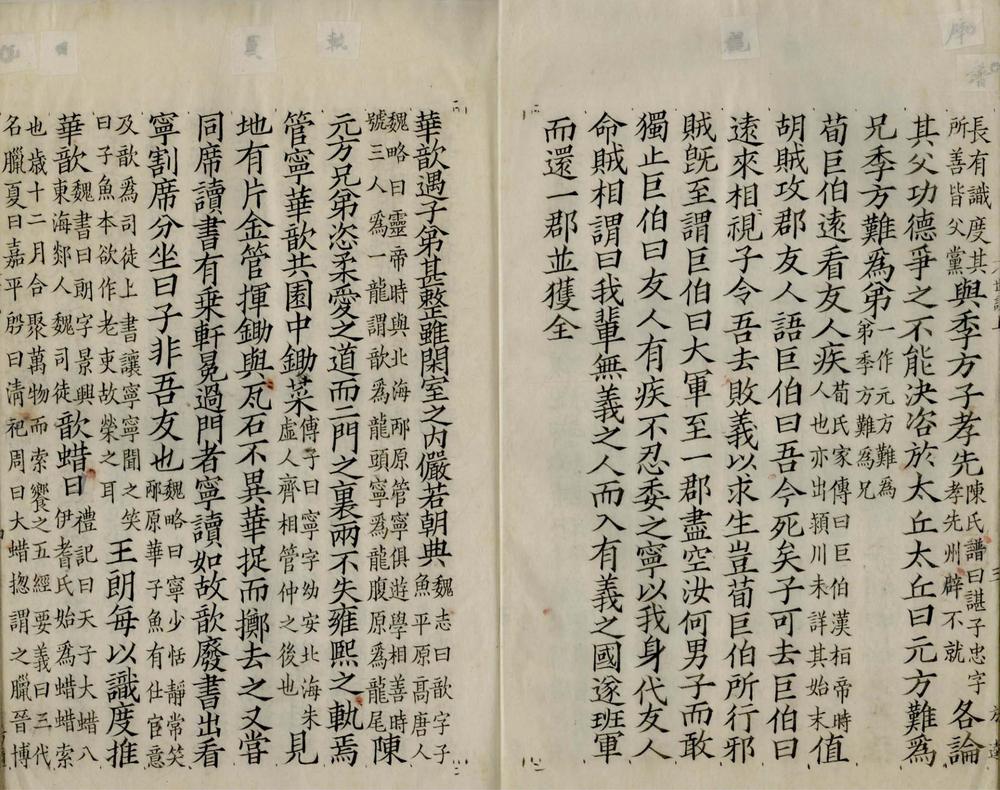 長有識度其
所善皆父黨與季方子孝先陳氏譜曰諶子忠字
孝先州辟不就各論
其父功德爭之不能決咨於太丘太丘曰元方難爲
兄季方難爲弟一作元方難爲
弟季方難爲兄
荀巨伯遠看友人疾荀氏家傳曰巨伯漢桓帝時
人也亦出潁川未詳其始末值
胡賊攻郡友人語巨伯曰吾今死矣子可去巨伯曰
遠來相視子令吾去敗義以求生豈荀巨伯所行邪
賊旣至謂巨伯曰大軍至一郡盡空汝何男子而敢
獨止巨伯曰友人有疾不忍委之寧以我身代友人
命賊相謂曰我輩無義之人而入有義之國遂班軍
而還一郡並獲全
華歆遇子弟甚整雖閑室之內儼若朝典魏志曰歆字子
魚平原高唐人
魏略曰靈帝時與北海邴原管寧俱遊學相善時
號三人爲一龍謂歆爲龍頭寧爲龍腹原爲龍尾陳
元方兄弟恣柔愛之道而二門之裏兩不失雍熙之軌焉
管寧華歆共園中鋤菜傅子曰寧字幼安北海朱
虛人齊相管仲之後也見
地有片金管揮鋤與瓦石不異華捉而擲去之又嘗
同席讀書有乗軒冕過門者寧讀如故歆廢書出看
寧割席分坐曰子非吾友也魏略曰寧少恬靜常笑
邴原華子魚有仕宦意
及歆爲司徒上書讓寧寧聞之笑
曰子魚本欲作老吏故榮之耳王朗每以識度推
華歆魏書曰朗字景興
東海郯人魏司徒歆蜡日禮記曰天子大蜡八
伊耆氏始爲蜡蜡索
也歳十二月合聚萬物而索饗之五經要義曰三代
名臘夏曰嘉平殷曰清祀周曰大蜡揔謂之臘晉博